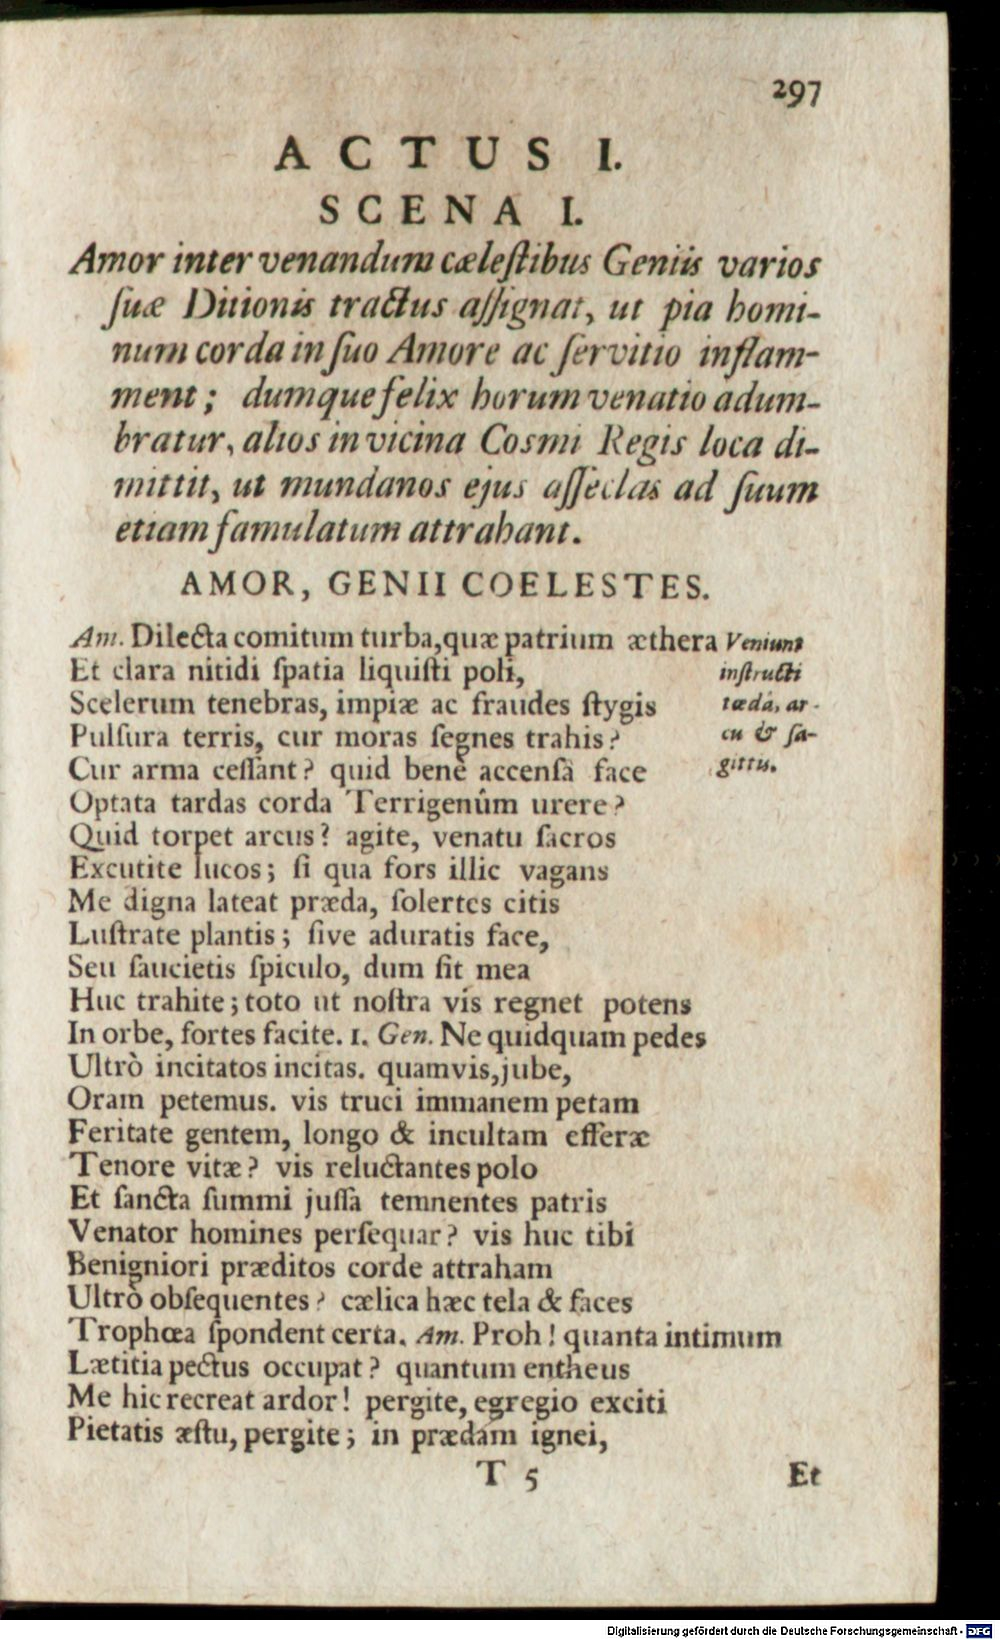 297
ACTUS I.
SCENA I.
Amor inter venandum cælestibus Geniis varios
suæ Ditionis tractus assignat, ut pia homi-
num corda in suo Amore ac servitio inflam-
ment; dumque felix horum venatio adum-
bratur, alios in vicina Cosmi Regis loca di-
mittit, ut mundanos ejus asseclas ad suum
etiam famulatum attrahant.
AMOR, GENII COELESTES.
Am. Dilecta comitum turba, quæ patrium æthera
Et clara nitidi spatia liquisti poli,
Scelerum tenebras, impiæ ac fraudes stygis
Pulsura terris, cur moras segnes trahis?
Cur arma cessant? quid benè accensâ face
Optata tardas corda Terrigenûm urere?
Quid torpet arcus? agite, venatu sacros
Excutite lucos; si qua fors illic vagans
Me digna lateat præda, solertes citis
Lustrate plantis; sive aduratis face,
Seu saucietis spiculo, dum sit mea
Huc trahite; toto ut nostra vis regnet potens
In orbe, fortes facite. 1. Gen. Ne quidquam pedes
Ultrò incitatos incitas. quamvis, jube,
Oram petemus. vis truci immanem petam
Feritate gentem, longo & incultam efferæ
Tenore vitæ? vis reluctantes polo
Et sancta summi jussa temnentes patris
Venator homines persequar? vis huc tibi
Benigniori præditos corde attraham
Ultrò obsequentes? cælica hæc tela & faces
Trophœa spondent certa. Am. Proh! quanta intimum
Lætitia pectus occupat? quantum entheus
Me hic recreat ardor! pergite, egregio exciti
Pietatis æstu, pergite; in prædam ignei,
Veniunt
instructi
tædâ, ar-
cu & sa-
gittis.
T 5
Et
Digitalisierung gefördert durch die Deutsche Forschungsgemeinschaft - DFG